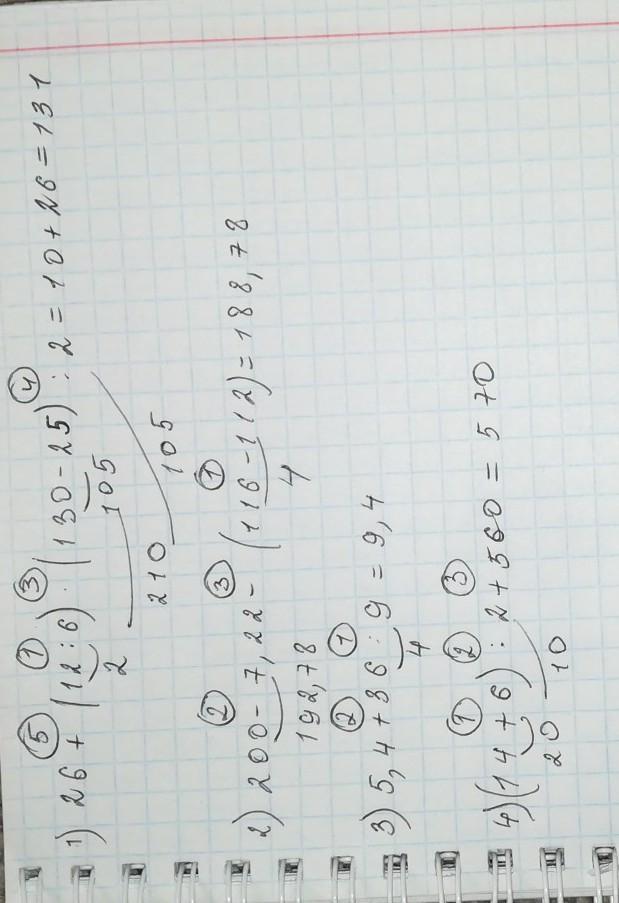 ⑤ ① ③ ④
1) 26 + (12 : 6) · (130 - 25) : 2 = 10 + 26 = 131
2 105
210 105
② ③ ①
2) 200 - 7,22 - (116 - 112) = 188,78
192,78 4
② ①
3) 5,4 + 36 : 9 = 9,4
4
① ② ③
4) (14 + 6) : 2 + 560 = 570
20 10